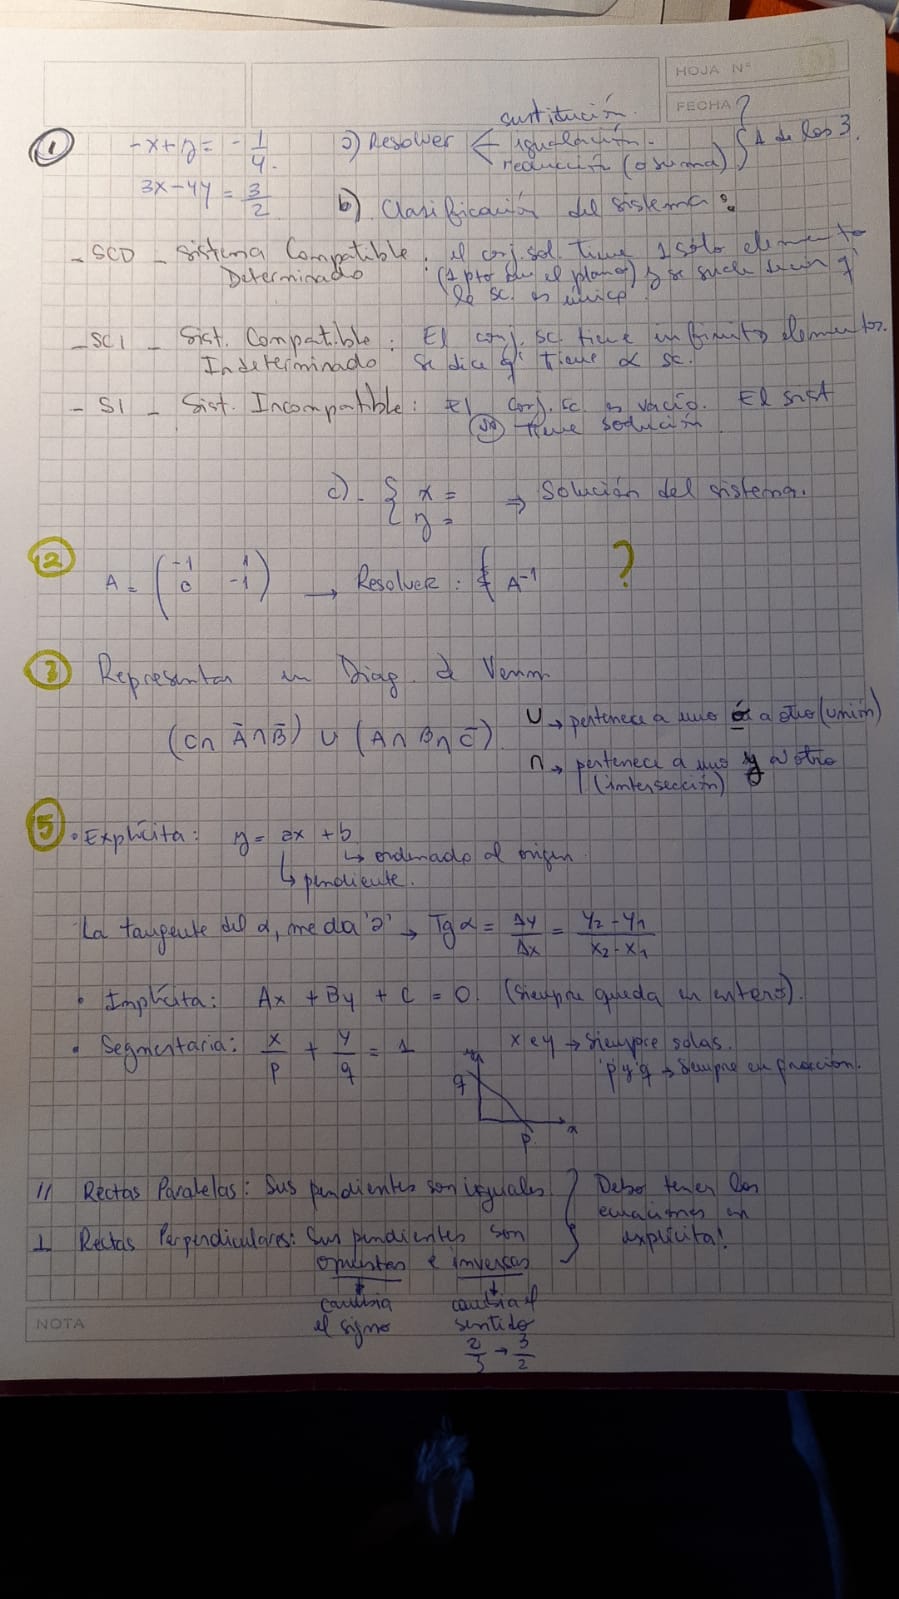 HOJA Nº
FECHA
① -x+y = -1/4 a) Resolver < sustitución. igualación. reducción (o suma) } 1 de los 3.
3x-4y = 3/2
b). Clasificación del sistema:
- SCD - Sistema Compatible Determinado : el conj. sol. tiene 1 solo elemento
(1 pto en el plano) y se suele decir q'
la sc. es única.
- SCI - Sist. Compatible Indeterminado : El conj. sc. tiene infinitos elementos.
Se dice q' tiene ∝ sc.
- SI - Sist. Incompatible: El conj. sc. es vacío. El sist
no tiene solución.
c). { x = → Solución del sistema.
y =
② A = ( -1 1 ) → Resolver : { A⁻¹ ?
( 0 -1 )
③ Representar en Diag. d Venn
(C∩ Ā∩B̄) ∪ (A∩ B∩ C̄).
∪ → pertenece a uno ó a otro (unión)
∩ → pertenece a uno y a otro
(intersección)
⑤ • Explícita: y = ax + b
↳ ordenado al origen.
↳ pendiente.
La tangente del α, me da 'a' → Tg α = Δy/Δx = (y₂-y₁)/(x₂-x₁)
• Implícita: Ax + By + C = 0. (Siempre queda en entero).
• Segmentaria: x/p + y/q = 1
x e y → siempre solas.
'p' y 'q' → siempre en fracción.
y
q
p x
// Rectas Paralelas: Sus pendientes son iguales
⊥ Rectas Perpendiculares: Sus pendientes son
opuestas e inversas
} Debo tener las
ecuaciones en
explícita!
cambia
el signo
cambia el
sentido
2/3 → 3/2
NOTA